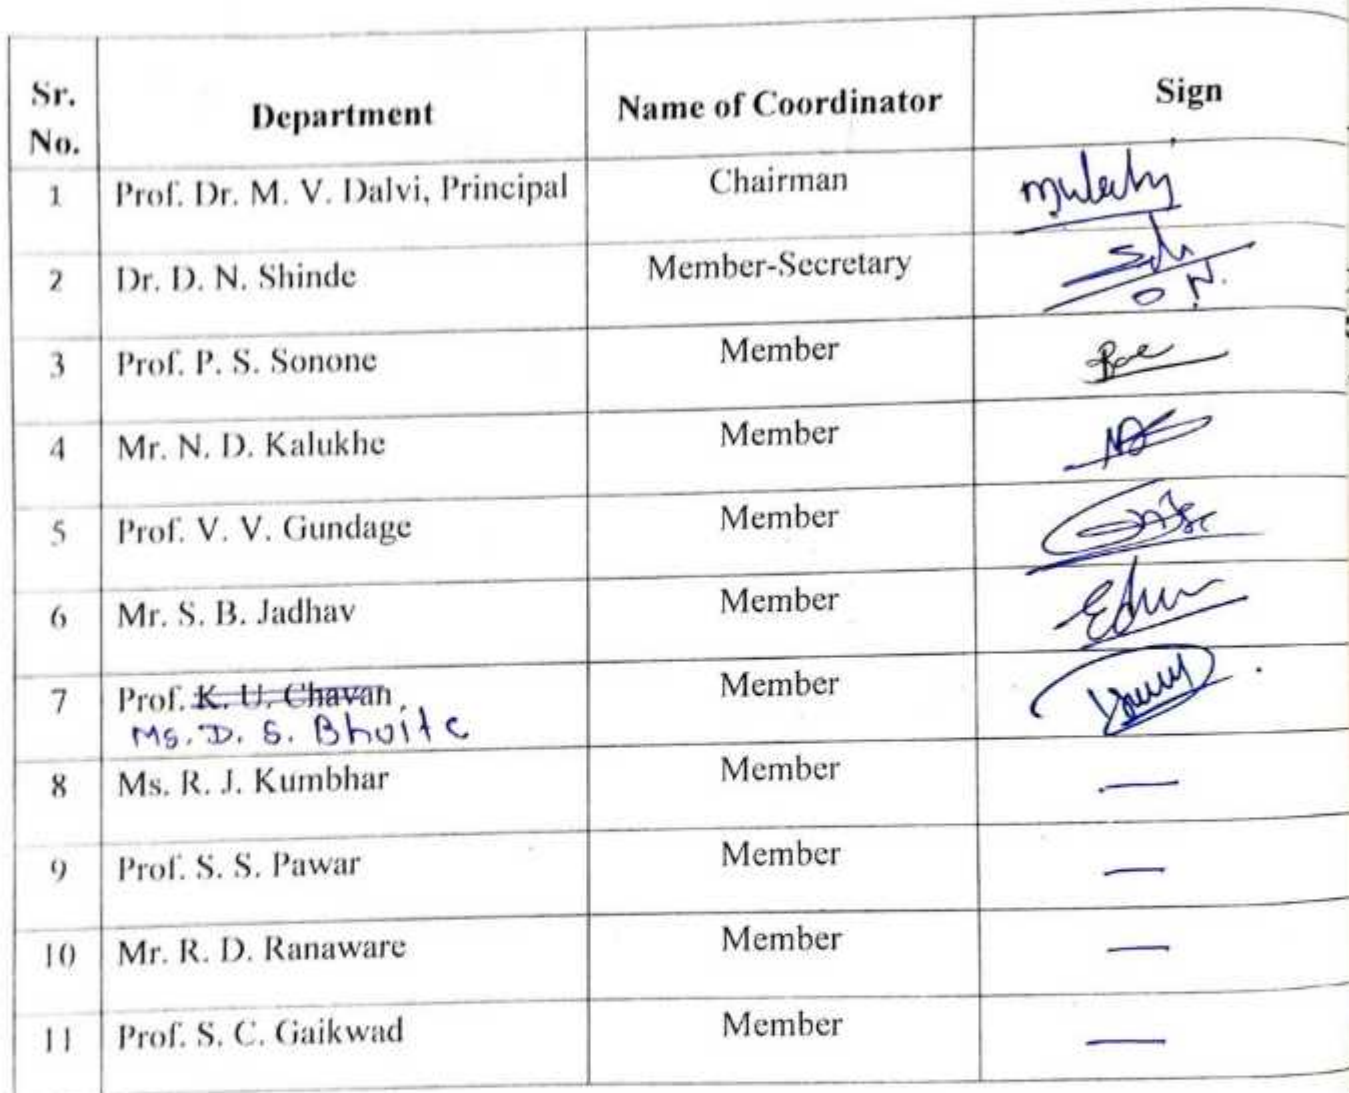 Sr. No. Department Name of Coordinator Sign
1 Prof. Dr. M. V. Dalvi, Principal Chairman
2 Dr. D. N. Shinde Member-Secretary
3 Prof. P. S. Sonone Member
4 Mr. N. D. Kalukhe Member
5 Prof. V. V. Gundage Member
6 Mr. S. B. Jadhav Member
7 Prof. K. U. Chavan, Member
Ms. D. S. Bhoite
8 Ms. R. J. Kumbhar Member —
9 Prof. S. S. Pawar Member —
10 Mr. R. D. Ranaware Member —
11 Prof. S. C. Gaikwad Member —